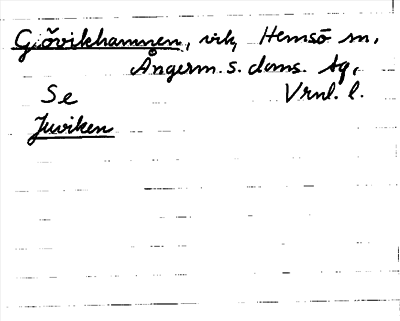 Gjövikhamnen, vik, Hemsö sn,
Ångerm. s. doms. tg,
Se Vrnl. l.
Juviken